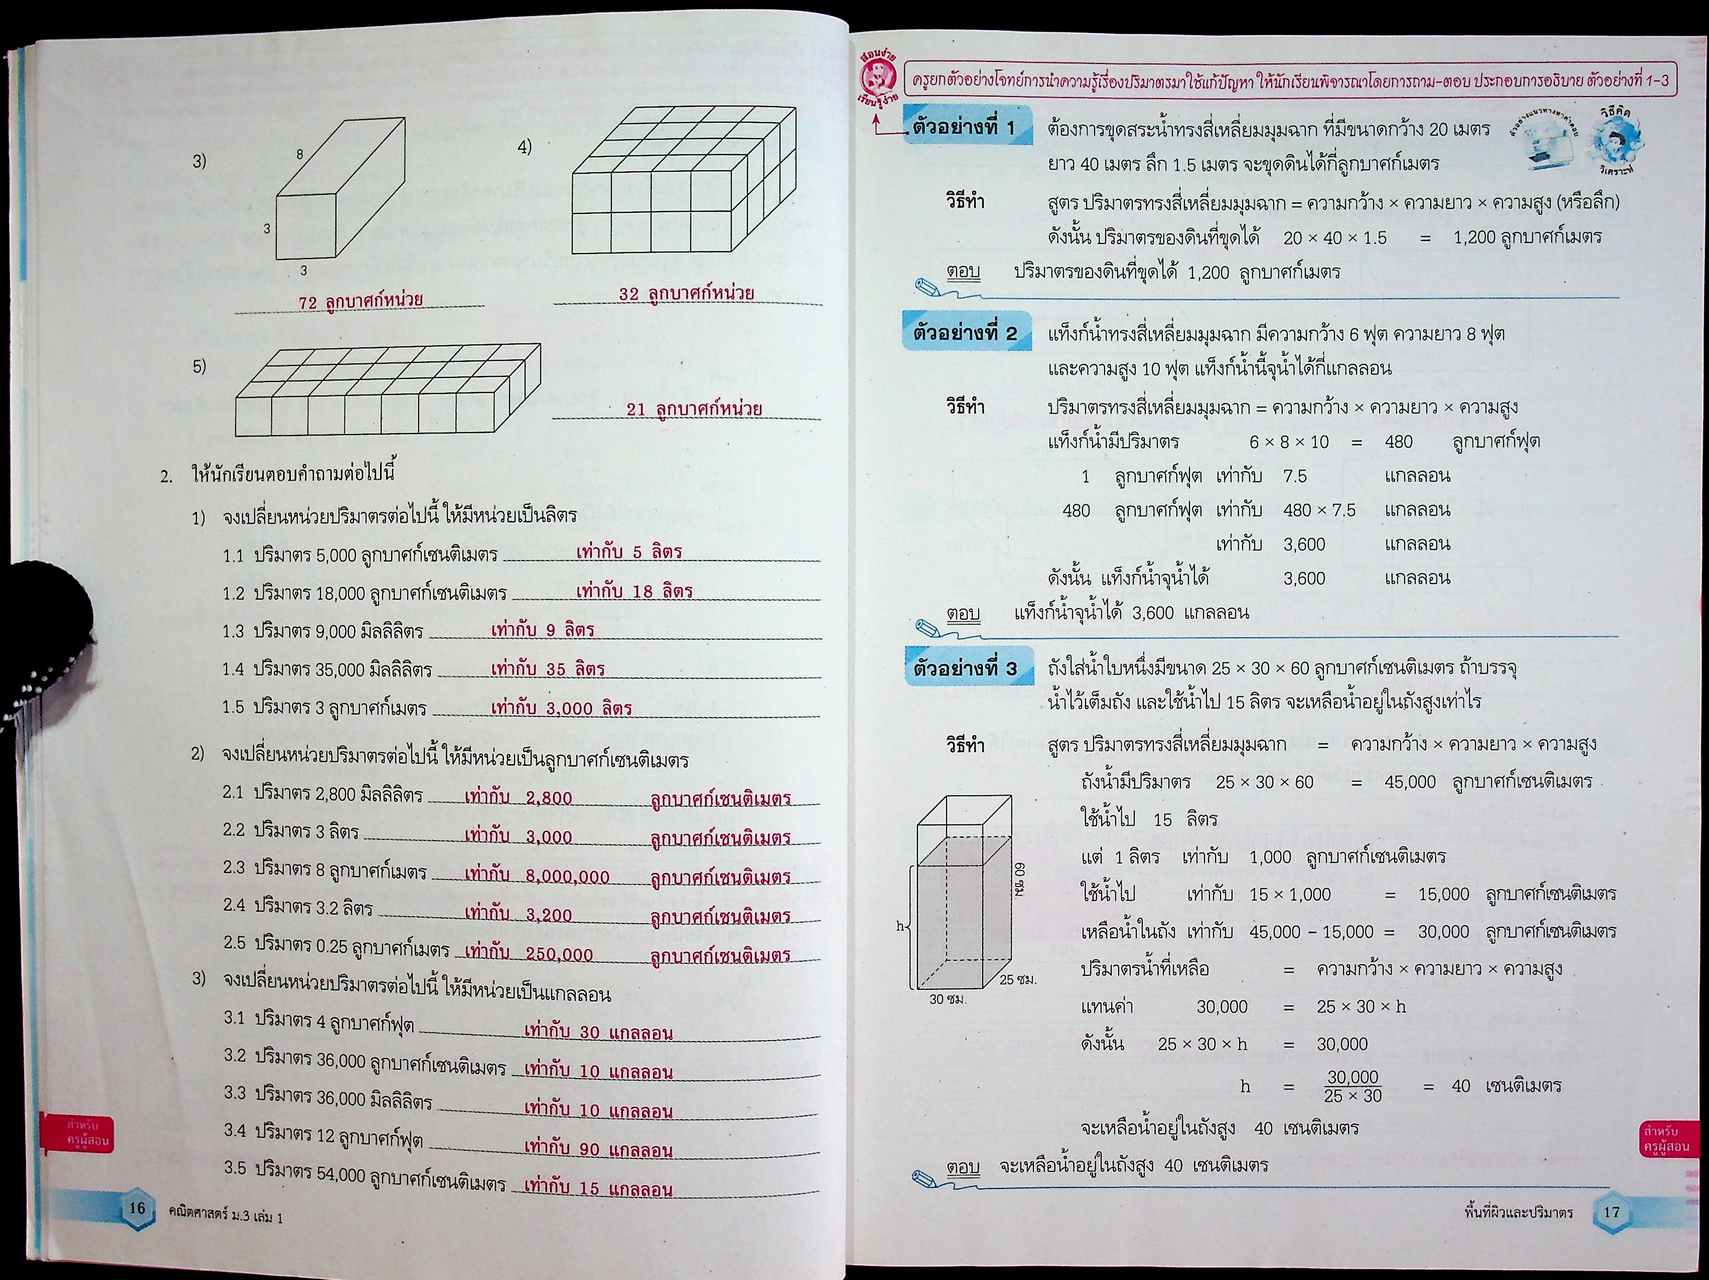 3)
8
3
3
72 ลูกบาศก์หน่วย
4)
32 ลูกบาศก์หน่วย
5)
21 ลูกบาศก์หน่วย
2. ให้นักเรียนตอบคำถามต่อไปนี้
1) จงเปลี่ยนหน่วยปริมาตรต่อไปนี้ ให้มีหน่วยเป็นลิตร
1.1 ปริมาตร 5,000 ลูกบาศก์เซนติเมตร เท่ากับ 5 ลิตร
1.2 ปริมาตร 18,000 ลูกบาศก์เซนติเมตร เท่ากับ 18 ลิตร
1.3 ปริมาตร 9,000 มิลลิลิตร เท่ากับ 9 ลิตร
1.4 ปริมาตร 35,000 มิลลิลิตร เท่ากับ 35 ลิตร
1.5 ปริมาตร 3 ลูกบาศก์เมตร เท่ากับ 3,000 ลิตร
2) จงเปลี่ยนหน่วยปริมาตรต่อไปนี้ ให้มีหน่วยเป็นลูกบาศก์เซนติเมตร
2.1 ปริมาตร 2,800 มิลลิลิตร เท่ากับ 2,800 ลูกบาศก์เซนติเมตร
2.2 ปริมาตร 3 ลิตร เท่ากับ 3,000 ลูกบาศก์เซนติเมตร
2.3 ปริมาตร 8 ลูกบาศก์เมตร เท่ากับ 8,000,000 ลูกบาศก์เซนติเมตร
2.4 ปริมาตร 3.2 ลิตร เท่ากับ 3,200 ลูกบาศก์เซนติเมตร
2.5 ปริมาตร 0.25 ลูกบาศก์เมตร เท่ากับ 250,000 ลูกบาศก์เซนติเมตร
3) จงเปลี่ยนหน่วยปริมาตรต่อไปนี้ ให้มีหน่วยเป็นแกลลอน
3.1 ปริมาตร 4 ลูกบาศก์ฟุต เท่ากับ 30 แกลลอน
3.2 ปริมาตร 36,000 ลูกบาศก์เซนติเมตร เท่ากับ 10 แกลลอน
3.3 ปริมาตร 36,000 มิลลิลิตร เท่ากับ 10 แกลลอน
3.4 ปริมาตร 12 ลูกบาศก์ฟุต เท่ากับ 90 แกลลอน
3.5 ปริมาตร 54,000 ลูกบาศก์เซนติเมตร เท่ากับ 15 แกลลอน
สำหรับ
ครูผู้สอน
16 คณิตศาสตร์ ม.3 เล่ม 1
สอนง่าย
เรียนรู้ง่าย
ครูยกตัวอย่างโจทย์การนำความรู้เรื่องปริมาตรมาใช้แก้ปัญหา ให้นักเรียนพิจารณาโดยการถาม-ตอบ ประกอบการอธิบาย ตัวอย่างที่ 1-3
ตัวอย่างที่ 1 ต้องการขุดสระน้ำทรงสี่เหลี่ยมมุมฉาก ที่มีขนาดกว้าง 20 เมตร
ยาว 40 เมตร ลึก 1.5 เมตร จะขุดดินได้กี่ลูกบาศก์เมตร
วิธีคิด
วิเคราะห์
วิธีทำ สูตร ปริมาตรทรงสี่เหลี่ยมมุมฉาก = ความกว้าง × ความยาว × ความสูง (หรือลึก)
ดังนั้น ปริมาตรของดินที่ขุดได้ 20 × 40 × 1.5 = 1,200 ลูกบาศก์เมตร
ตอบ ปริมาตรของดินที่ขุดได้ 1,200 ลูกบาศก์เมตร
ตัวอย่างที่ 2 แท็งก์น้ำทรงสี่เหลี่ยมมุมฉาก มีความกว้าง 6 ฟุต ความยาว 8 ฟุต
และความสูง 10 ฟุต แท็งก์น้ำนี้จุน้ำได้กี่แกลลอน
วิธีทำ ปริมาตรทรงสี่เหลี่ยมมุมฉาก = ความกว้าง × ความยาว × ความสูง
แท็งก์น้ำมีปริมาตร 6 × 8 × 10 = 480 ลูกบาศก์ฟุต
1 ลูกบาศก์ฟุต เท่ากับ 7.5 แกลลอน
480 ลูกบาศก์ฟุต เท่ากับ 480 × 7.5 แกลลอน
เท่ากับ 3,600 แกลลอน
ดังนั้น แท็งก์น้ำจุน้ำได้ 3,600 แกลลอน
ตอบ แท็งก์น้ำจุน้ำได้ 3,600 แกลลอน
ตัวอย่างที่ 3 ถังใส่น้ำใบหนึ่งมีขนาด 25 × 30 × 60 ลูกบาศก์เซนติเมตร ถ้าบรรจุ
น้ำไว้เต็มถัง และใช้น้ำไป 15 ลิตร จะเหลือน้ำอยู่ในถังสูงเท่าไร
วิธีทำ สูตร ปริมาตรทรงสี่เหลี่ยมมุมฉาก = ความกว้าง × ความยาว × ความสูง
ถังน้ำมีปริมาตร 25 × 30 × 60 = 45,000 ลูกบาศก์เซนติเมตร
ใช้น้ำไป 15 ลิตร
แต่ 1 ลิตร เท่ากับ 1,000 ลูกบาศก์เซนติเมตร
ใช้น้ำไป เท่ากับ 15 × 1,000 = 15,000 ลูกบาศก์เซนติเมตร
เหลือน้ำในถัง เท่ากับ 45,000 – 15,000 = 30,000 ลูกบาศก์เซนติเมตร
ปริมาตรน้ำที่เหลือ = ความกว้าง × ความยาว × ความสูง
แทนค่า 30,000 = 25 × 30 × h
ดังนั้น 25 × 30 × h = 30,000
h = 30,000 / 25 × 30 = 40 เซนติเมตร
จะเหลือน้ำอยู่ในถังสูง 40 เซนติเมตร
60 ซม.
h
25 ซม.
30 ซม.
ตอบ จะเหลือน้ำอยู่ในถังสูง 40 เซนติเมตร
สำหรับ
ครูผู้สอน
พื้นที่ผิวและปริมาตร 17